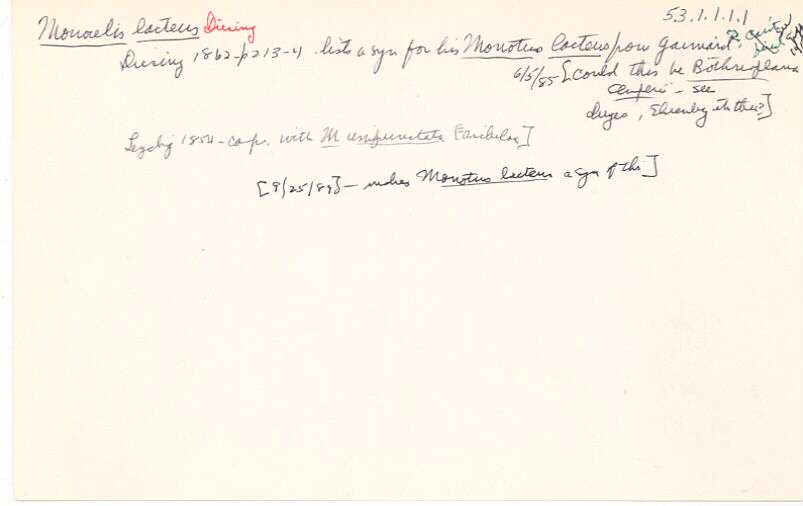 5.3.1.1.1.1
Monocelis lacteus Diesing
Diesing 1862-p213-4 lists a syn for his Monotus lacteus from Gaimard
6/5/85 [could this be Bothrioplana
semperi - see
Duges, Ehrenberg
Leydig 1854 - comp. with M unipunctata
[8/25/89] - makes Monotus lacteus a syn of this]